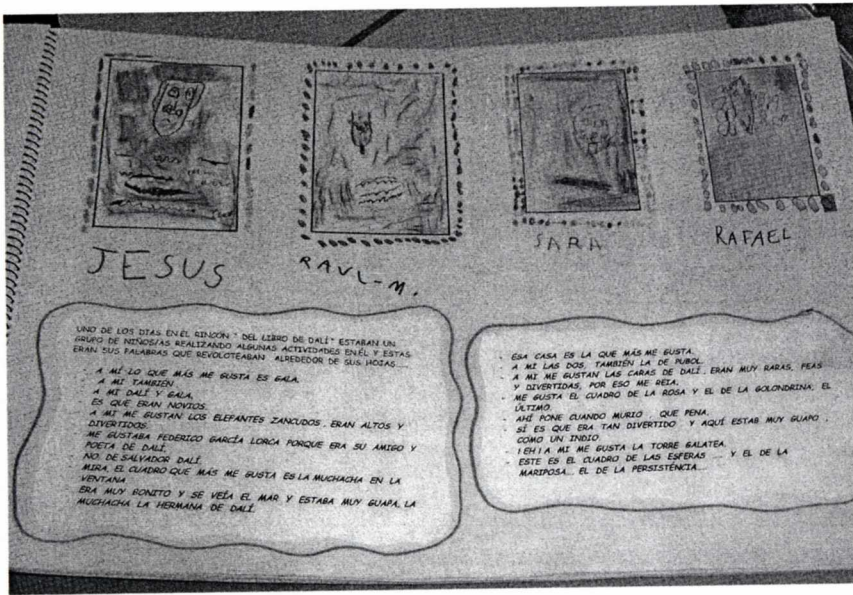 JESUS
RAUL-M.
SARA
RAFAEL
UNO DE LOS DIAS EN EL RINCÓN " DEL LIBRO DE DALÍ" ESTABAN UN
GRUPO DE NIÑOS/AS REALIZANDO ALGUNAS ACTIVIDADES EN ÉL Y ESTAS
ERAN SUS PALABRAS QUE REVOLOTEABAN ALREDEDOR DE SUS HOJAS...
- A MÍ LO QUE MÁS ME GUSTA ES GALA.
- A MI TAMBIÉN
- A MI DALÍ Y GALA,
- ES QUE ERAN NOVIOS.
- A MI ME GUSTAN LOS ELEFANTES ZANCUDOS. ERAN ALTOS Y
DIVERTIDOS.
- ME GUSTABA FEDERICO GARCÍA LORCA PORQUE ERA SU AMIGO Y
POETA DE DALÍ.
- NO, DE SALVADOR DALÍ.
- MIRA, EL CUADRO QUE MÁS ME GUSTA ES LA MUCHACHA EN LA
VENTANA
- ERA MUY BONITO Y SE VEÍA EL MAR Y ESTABA MUY GUAPA, LA
MUCHACHA LA HERMANA DE DALÍ.
- ESA CASA ES LA QUE MÁS ME GUSTA.
- A MI LAS DOS, TAMBIÉN LA DE PUBOL.
- A MI ME GUSTAN LAS CARAS DE DALÍ, ERAN MUY RARAS, FEAS
Y DIVERTIDAS, POR ESO ME REIA.
- ME GUSTA EL CUADRO DE LA ROSA Y EL DE LA GOLONDRINA, EL
ÚLTIMO.
- AHÍ PONE CUANDO MURIO , QUE PENA.
- SÍ ES QUE ERA TAN DIVERTIDO Y AQUÍ ESTAB MUY GUAPO ,
COMO UN INDIO.
- ! EH ! A MI ME GUSTA LA TORRE GALATEA.
- ESTE ES EL CUADRO DE LAS ESFERAS .... Y EL DE LA
MARIPOSA... EL DE LA PERSISTÉNCIA....